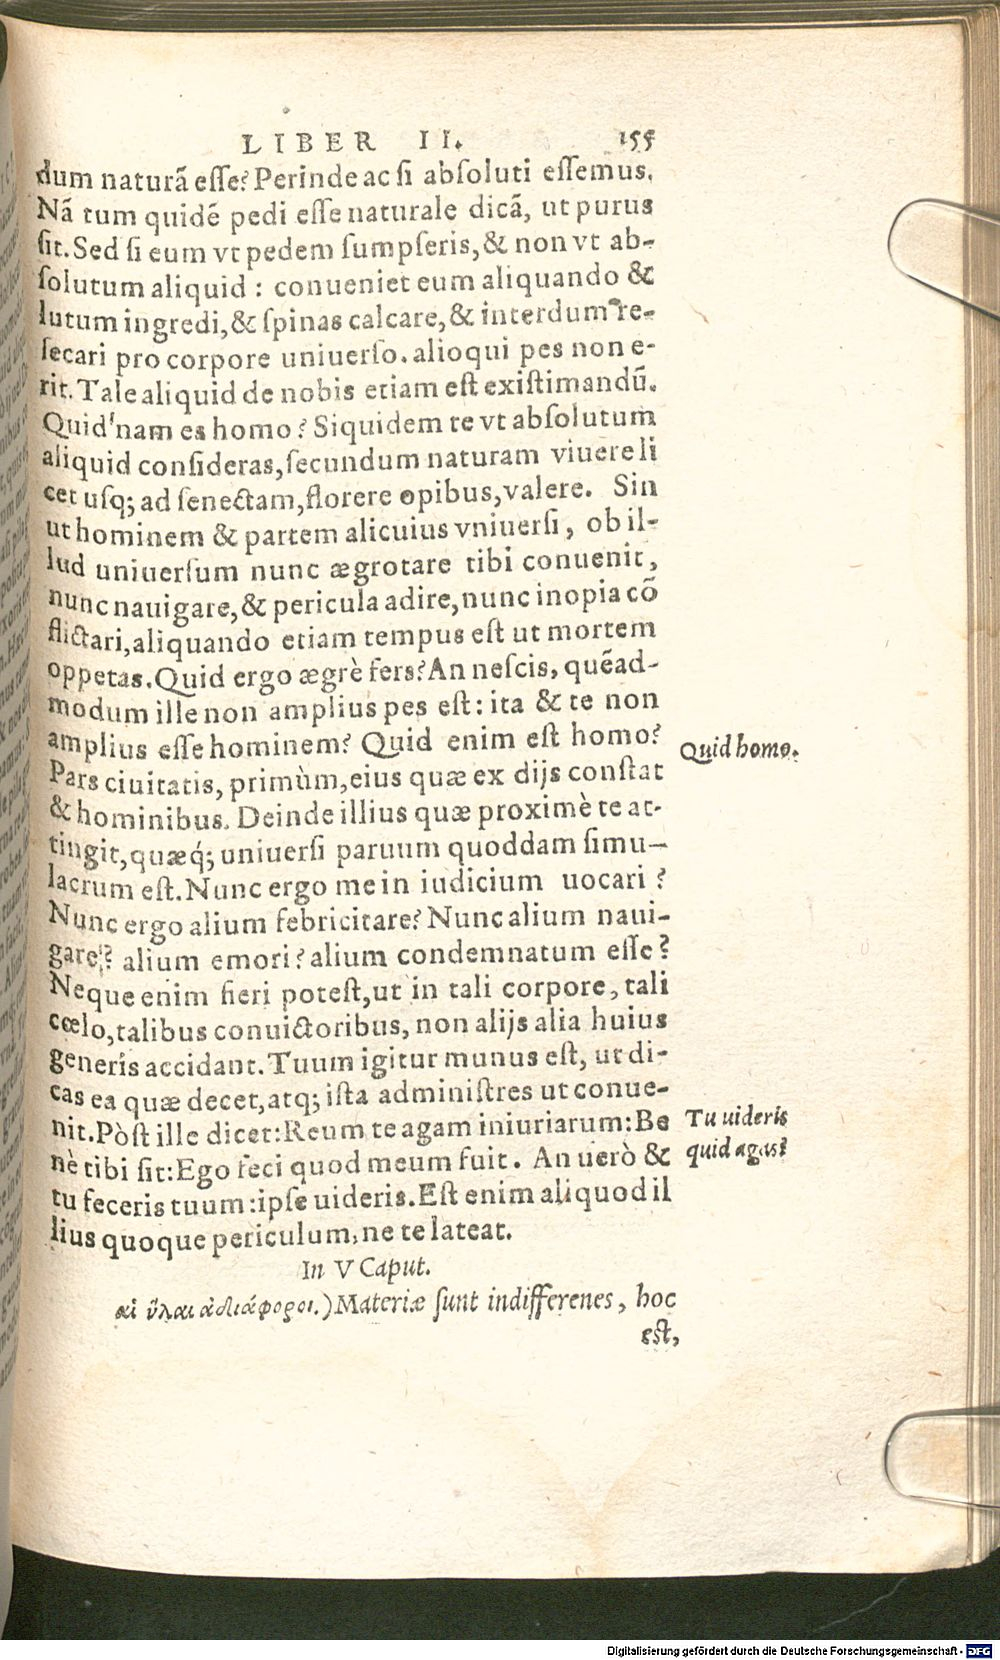 LIBER II. 155
dum naturã eſſe? Perinde ac ſi abſoluti eſſemus.
Nã tum quidẽ pedi eſſe naturale dicã, ut purus
ſit. Sed ſi eum vt pedem ſumpſeris, & non vt ab-
ſolutum aliquid : conueniet eum aliquando &
lutum ingredi, & ſpinas calcare, & interdum re-
ſecari pro corpore uniuerſo. alioqui pes non e-
rit. Tale aliquid de nobis etiam eſt exiſtimandũ.
Quid'nam es homo? Siquidem te vt abſolutum
aliquid conſideras, ſecundum naturam viuere li
cet uſq; ad ſenectam, florere opibus, valere. Sin
ut hominem & partem alicuius vniuerſi, ob il-
lud uniuerſum nunc ægrotare tibi conuenit,
nunc nauigare, & pericula adire, nunc inopia cõ
flictari, aliquando etiam tempus eſt ut mortem
oppetas. Quid ergo ægrè fers? An neſcis, quẽad-
modum ille non amplius pes eſt: ita & te non
amplius eſſe hominem? Quid enim eſt homo?
Quid homo.
Pars ciuitatis, primùm, eius quæ ex dijs conſtat
& hominibus. Deinde illius quæ proximè te at-
tingit, quæq́; uniuerſi paruum quoddam ſimu-
lacrum eſt. Nunc ergo me in iudicium uocari ?
Nunc ergo alium febricitare? Nunc alium naui-
gare? alium emori? alium condemnatum eſſe?
Neque enim fieri poteſt, ut in tali corpore, tali
cœlo, talibus conuictoribus, non alijs alia huius
generis accidant. Tuum igitur munus eſt, ut di-
cas ea quæ decet, atq; iſta adminiſtres ut conue-
nit. Pòſt ille dicet: Reum te agam iniuriarum: Be
Tu uideris
nè tibi ſit: Ego feci quod meum fuit. An uerò &
quid agas?
tu feceris tuum: ipſe uideris. Eſt enim aliquod il
lius quoque periculum, ne te lateat.
In V Caput.
αἱ ὕλαι ἀδιάφοροι.) Materiæ ſunt indifferenes, hoc
eſt,
Digitalisierung gefördert durch die Deutsche Forschungsgemeinschaft - DFG